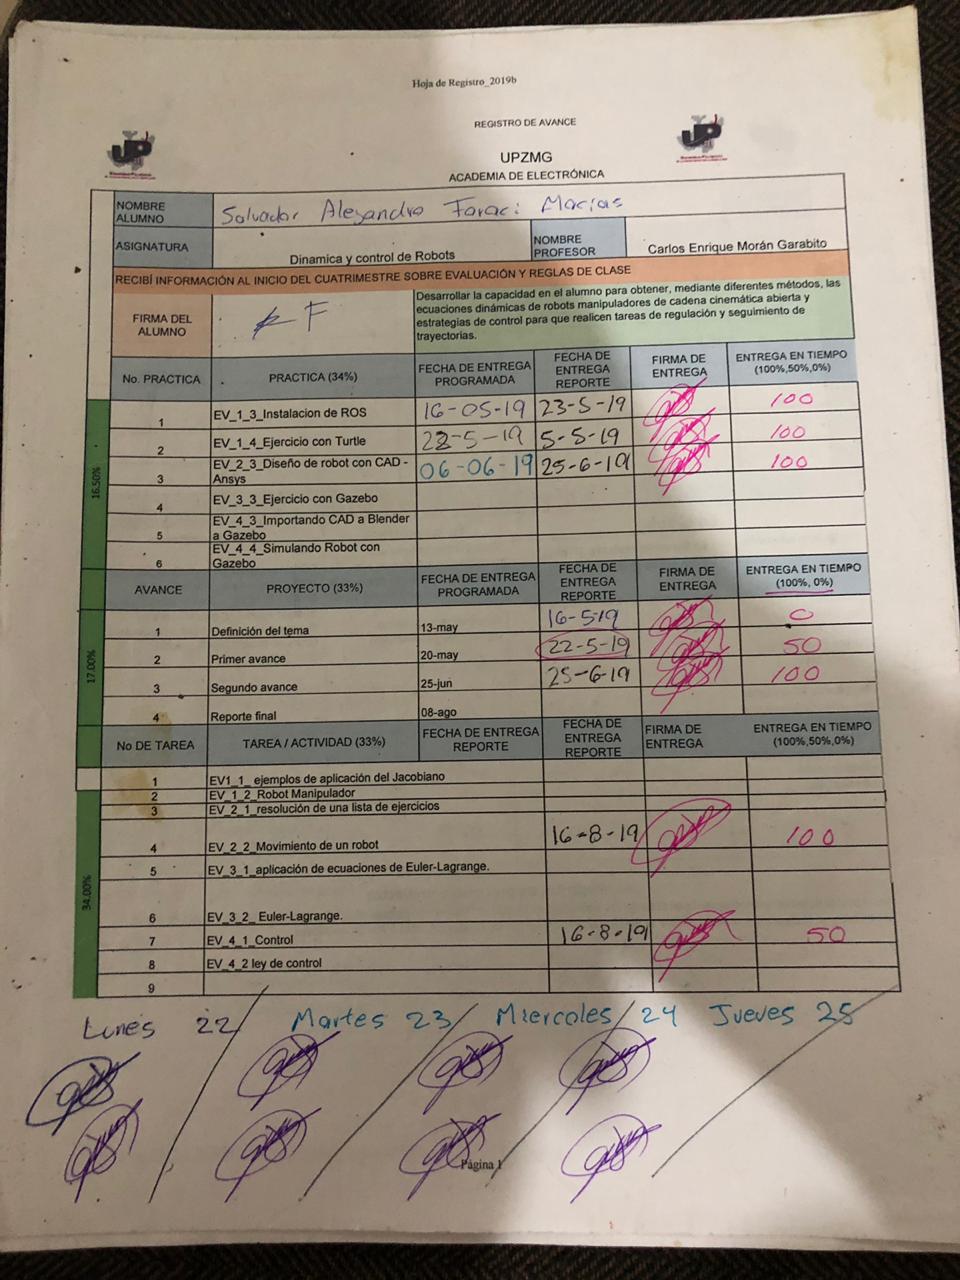 Hoja de Registro_2019b
REGISTRO DE AVANCE
UPZMG
ACADEMIA DE ELECTRÓNICA
NOMBRE ALUMNO Salvador Alejandro Macias
ASIGNATURA Dinamica y control de Robots NOMBRE PROFESOR Carlos Enrique Morán Garabito
RECIBÍ INFORMACIÓN AL INICIO DEL CUATRIMESTRE SOBRE EVALUACIÓN Y REGLAS DE CLASE
FIRMA DEL ALUMNO
Desarrollar la capacidad en el alumno para obtener, mediante diferentes métodos, las
ecuaciones dinámicas de robots manipuladores de cadena cinemática abierta y
estrategias de control para que realicen tareas de regulación y seguimiento de
trayectorias.
No. PRACTICA PRACTICA (34%) FECHA DE ENTREGA PROGRAMADA FECHA DE ENTREGA REPORTE FIRMA DE ENTREGA ENTREGA EN TIEMPO (100%,50%,0%)
16.50%
1 EV_1_3_Instalacion de ROS 16-05-19 23-5-19 100
2 EV_1_4_Ejercicio con Turtle 22-5-19 5-5-19 100
3 EV_2_3_Diseño de robot con CAD - Ansys 06-06-19 25-6-19 100
4 EV_3_3_Ejercicio con Gazebo
5 EV_4_3_Importando CAD a Blender a Gazebo
6 EV_4_4_Simulando Robot con Gazebo
AVANCE PROYECTO (33%) FECHA DE ENTREGA PROGRAMADA FECHA DE ENTREGA REPORTE FIRMA DE ENTREGA ENTREGA EN TIEMPO (100%, 0%)
17.00%
1 Definición del tema 13-may 16-5-19 0
2 Primer avance 20-may 22-5-19 50
3 Segundo avance 25-jun 25-6-19 100
4 Reporte final 08-ago
No DE TAREA TAREA / ACTIVIDAD (33%) FECHA DE ENTREGA REPORTE FECHA DE ENTREGA REPORTE FIRMA DE ENTREGA ENTREGA EN TIEMPO (100%,50%,0%)
34.00%
1 EV1_1_ ejemplos de aplicación del Jacobiano
2 EV_1_2_Robot Manipulador
3 EV_2_1_resolución de una lista de ejercicios
4 EV_2_2_Movimiento de un robot 16-8-19 100
5 EV_3_1_aplicación de ecuaciones de Euler-Lagrange.
6 EV_3_2_ Euler-Lagrange.
7 EV_4_1_Control 16-8-19 50
8 EV_4_2 ley de control
9
Lunes 22/ Martes 23/ Miercoles/24 Jueves 25
Página 1